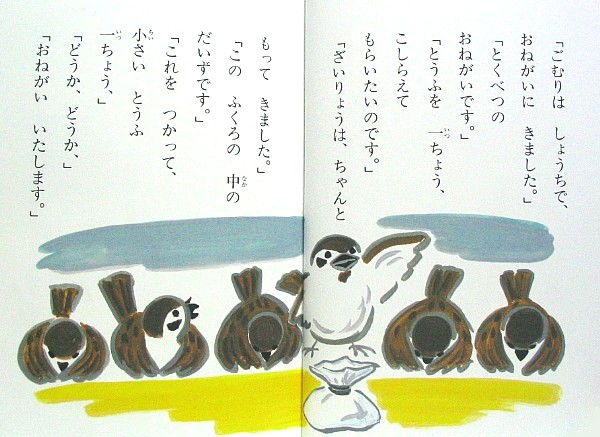 「ごむりは しょうちで、
おねがいに きました。」
「とくべつの
おねがいです。」
「とうふを 一ちょう、
こしらえて
もらいたいのです。」
「ざいりょうは、ちゃんと
もって きました。」
「この ふくろの 中の
だいずです。」
「これを つかって、
小さい とうふ
一ちょう、」
「どうか、どうか、」
「おねがい いたします。」